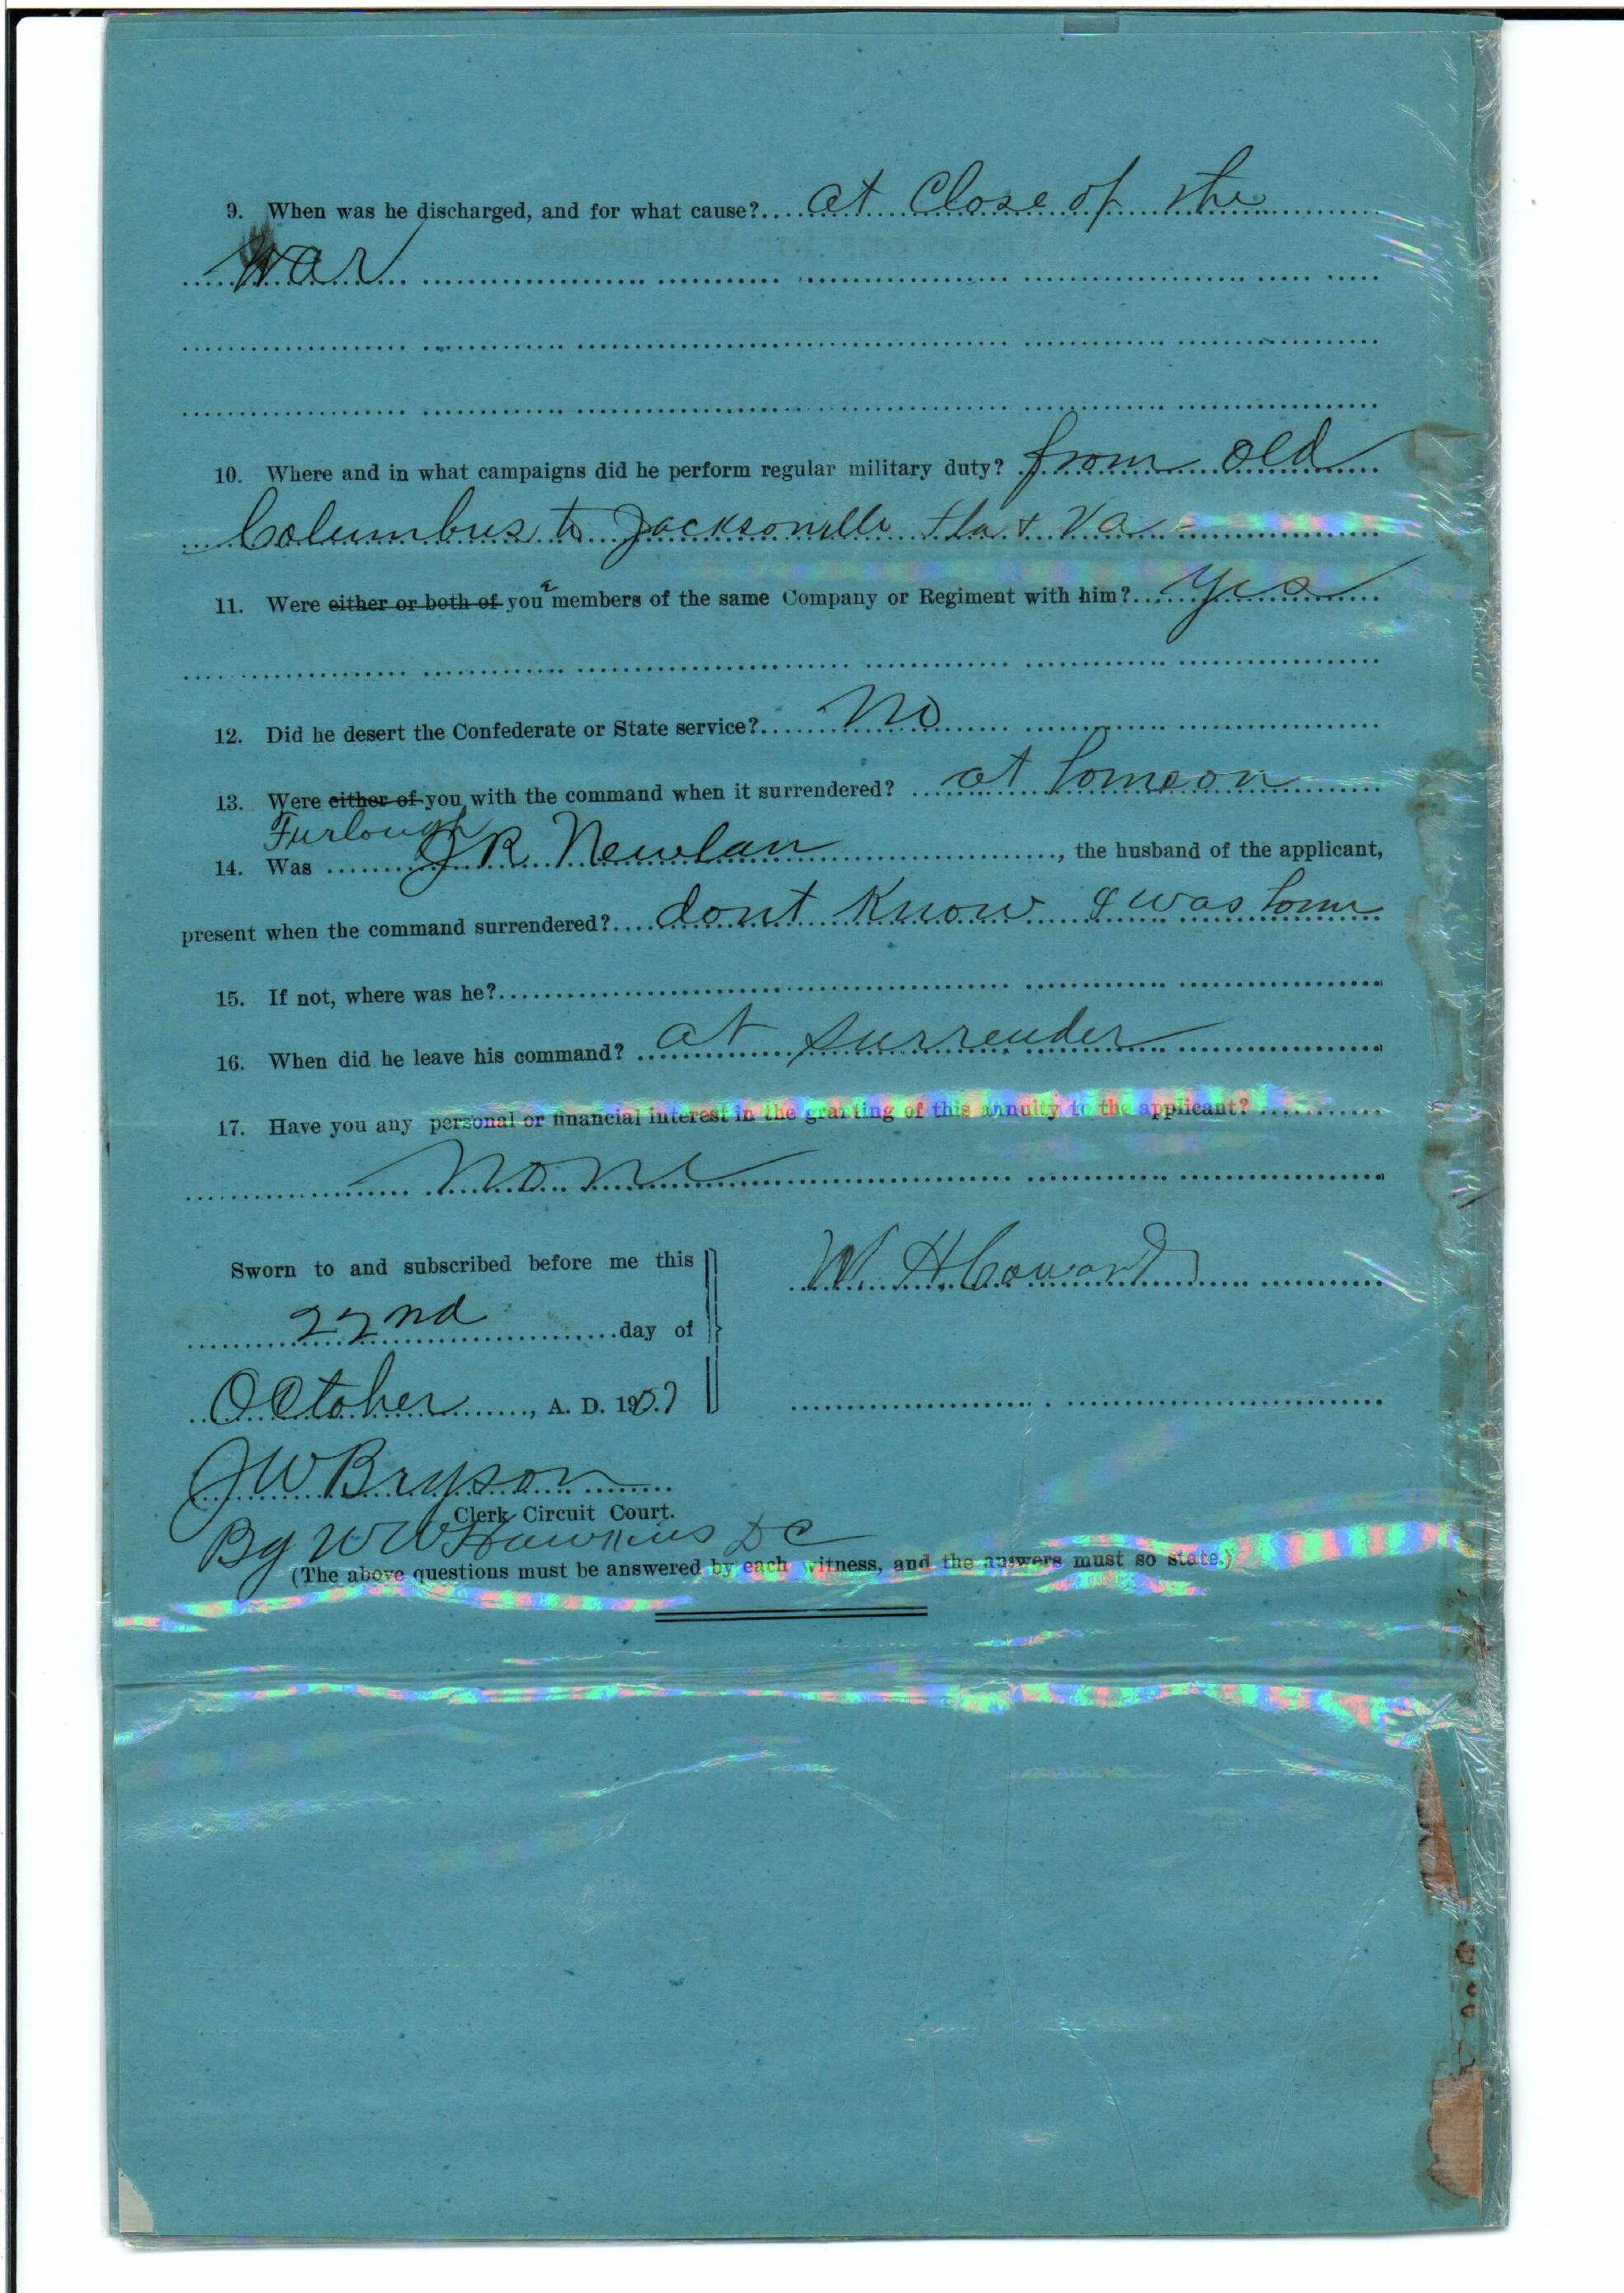 9. When was he discharged, and for what cause? at Close of the
War
10. Where and in what campaigns did he perform regular military duty? from old
Columbus to Jacksonville Fla & Va
11. Were either or both of you a members of the same Company or Regiment with him? Yes
12. Did he desert the Confederate or State service? No
13. Were either of you with the command when it surrendered? at home on
Furlough
14. Was J R Newlan, the husband of the applicant,
present when the command surrendered? dont Know I was home
15. If not, where was he?
16. When did he leave his command? at surrender
17. Have you any personal or financial interest in the granting of this annuity to the applicant?
None
Sworn to and subscribed before me this
W. H Coward
22nd day of
October, A. D. 1907
J W Bryson
Clerk Circuit Court.
By W W Hawkins D C
(The above questions must be answered by each witness, and the answers must so state.)